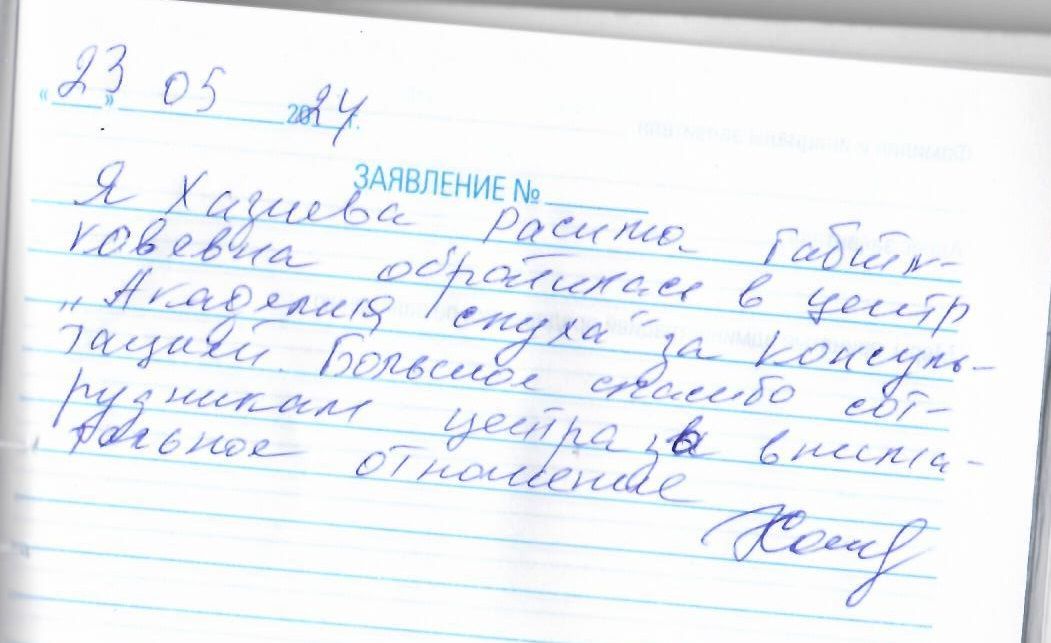 «23» 05 2024 г.
ЗАЯВЛЕНИЕ № ______
Я Хазиева Расима Габтл-
ховевна обратилась в центр
„Академия слуха“ за консуль-
тацией. Большое спасибо сот-
рудникам центра за внима-
тельное отношение